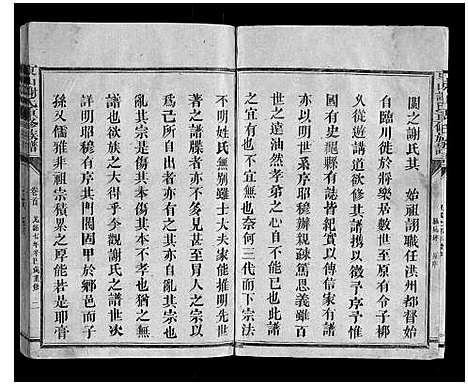 閩之謝氏其 始祖詡職任洪州都督始
自臨川徙於將樂居數世至原有令子柳
又從游講道欲修其譜攜以徵予序予惟
國有史䂓縣有誌皆紀實以傳信家有譜
亦以明世系序昭穆辨親疎篤恩義雖百
世之遠油然孝弟之心自不能已
之宜有也不宜無也奈何三代而下宗法
不明姓氏無別雖士大夫家能推明先世
者之譜牒者亦不多見甚至冒人之宗以
爲己所自出者亦有之矣
亂其宗是傷其本不孝也猶之無
也道欲族之大得乎今觀謝氏之譜世次
詳明昭穆有序其門閥固甲於鄉邑而子
孫又儒雅非祖宗積累之厚能若是耶膏
東山謝氏重修族譜
卷首
光緒七年辛巳歲重修
二